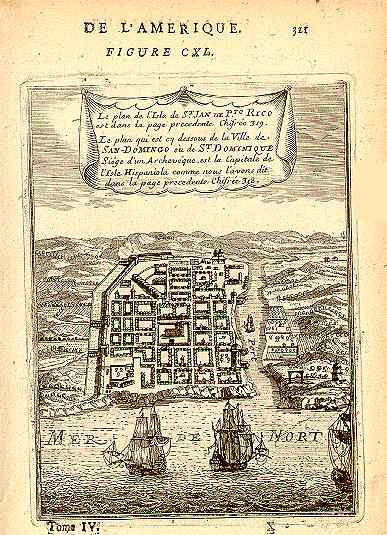 DE L'AMERIQUE. 321
FIGURE CXL.
Le plan de l'Isle de St. JAN DE Pto. RICO
est dans la page precedente Chifrée 319.
Le plan qui est cy dessous de la Ville de
SAN-DOMINGO ou de St. DOMINIQUE
Siège d'un Archevêque, est la Capitale de
l'Isle Hispaniola comme nous l'avons dit
dans la page precedente Chifrée 318.
MER DE NORT
Tome IV. X